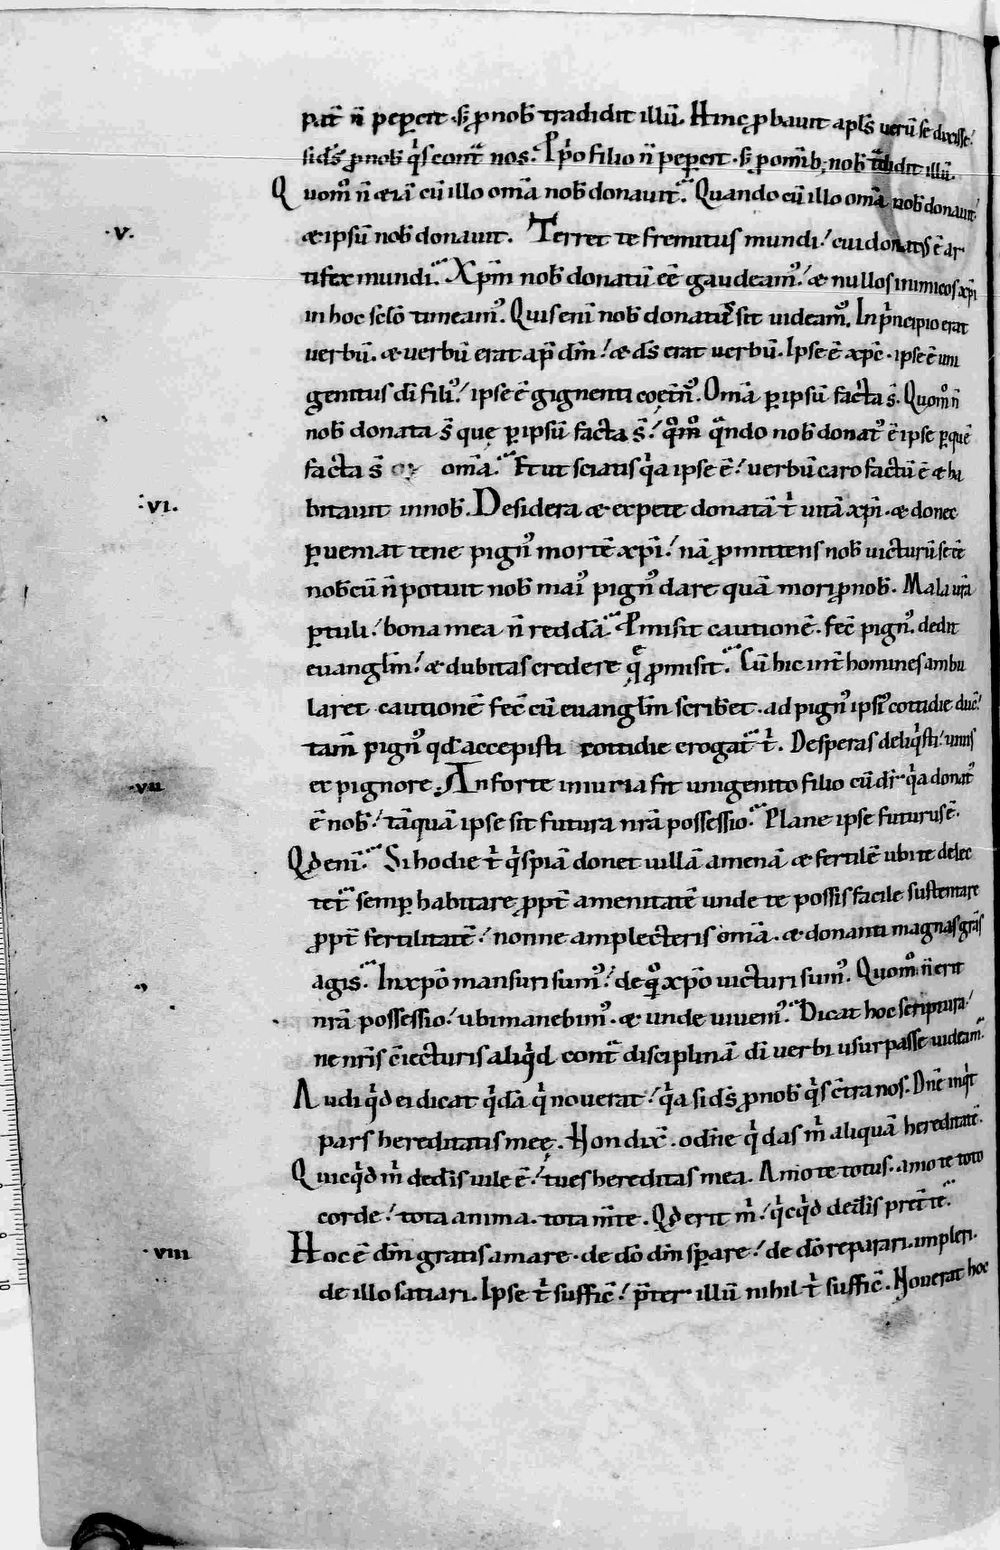 pat̄ n̄ peꝑcit · s; ꝓ nob̄ tradidit illū. Hinc ꝓbauit apl̄s uerū se dixisse /
si d̄s ꝓ nob̄ qͥs contͣ nos. Pp̄o filio n̄ peꝑcit · s; ꝓ omīb; nob̄ tͣdidit illū.
Quom̊ n̄ & iā cū illo omīa nob̄ donauit. Quando cū illo omīa nob̄ donauit /
·v· & ipsū nob̄ donauit. Terret te fremitus mundi / cui donatus ē ar
tifex mundi. Xp̄m nob̄ donatū eē gaudeam᷒ / & nullos inimicos xp̄i
in hoc sclō timeam᷒. Quis eni nob̄ donatus sit uideam᷒. In pͥncipio erat
uerbū · & uerbū erat ap̄ dm̄ / & d̄s erat uerbū. Ipse ē xp̄c · ipse ē uni
genitus di filī᷒ / ipse ē gignenti coęt̄n᷒. Omīa ꝑ ipsū facta s̄. Quom̊ n̄
nob̄ donata s̄ quę ꝑ ipsū facta s̄ / qͦm̊ qͣndo nob̄ donat᷒ ē ipse ꝑ quē
facta s̄ omīa. Et ut sciatis qͥa ipse ē / uerbū caro factū ē & ha
·vi· bitauit in nob̄. Desidera & expete donatā tͥ uitā xp̄i · & donec
ꝑueniat tene pign᷒ mortē xp̄i / nā ꝓmittens nob̄ uicturū se eē
nob̄cū n̄ potuit nob̄ mai᷒ pign᷒ dare quā mori ꝓ nob̄. Mala ur̄a
ꝑtuli / bona mea n̄ reddā. Pmisit cautionē · fec̄ pign᷒ · dedit
euanglm̄ / & dubitas credere qͦ ꝓmisit. Cū hic int̄ homines ambu
laret · cautionē fec̄ cū euanglm̄ scrib̄et · ad pign᷒ ipsī᷒ cottidie duc̄ /
tam̄ pign᷒ qd̄ accepisti cottidie erogat̄ tͥ. Desperas deliqͥsti / uiuis
·vii· ex pignore. An forte iniuria fit unigenito filio cū dr̄ qͥa donat᷒
ē nob̄ / tāquā ipse sit futura nr̄a possessio. Plane ipse futurus ē.
Qd̄ eni. Si hodie tͥ qͥspiā donet uillā amenā & fertilē ubi te delec
tet̄ semꝑ habitare ꝓpt̄ amenitatē unde te possis facile sustentare
ꝓpt̄ fertilitatē / nonne amplecteris omīa · & donanti magnas grās
agis. In xp̄o mansuri sum᷒ / de qͦ xp̄o uicturi sum᷒. Quom̊ n̄ erit
nr̄a possessio / ubi manebim᷒ · & unde uiuem᷒. Dicat hoc scriptura /
ne nr̄is c̄iecturis aliqͥd contͣ disciplinā di uerbi usurpasse uideam᷒.
Audi qͥd ei dicat qͥdā qͥ nouerat / qͥa si d̄s ꝓ nob̄ qͥs c̄tra nos. Dn̄e inqͥt
pars hereditatis meę. Non dix̄ · o dn̄e qͥ das mͥ aliquā hereditatē.
Quicqͥd mͥ ded̄is uile ē / tu es hereditas mea. Amo te totus · amo te toto
corde / tota anima · tota m̄te. Qd̄ erit mͥ / qͥcqͥd ded̄is p̄ter te.
·viii· Hoc ē dm̄ gratis amare · de dō dm̄ sꝑare / de dō reparari · impleri ·
de illo satiari. Ipse tͥ suffic̄ / p̄ter illū nihil tͥ suffic̄. Nouerat hoc